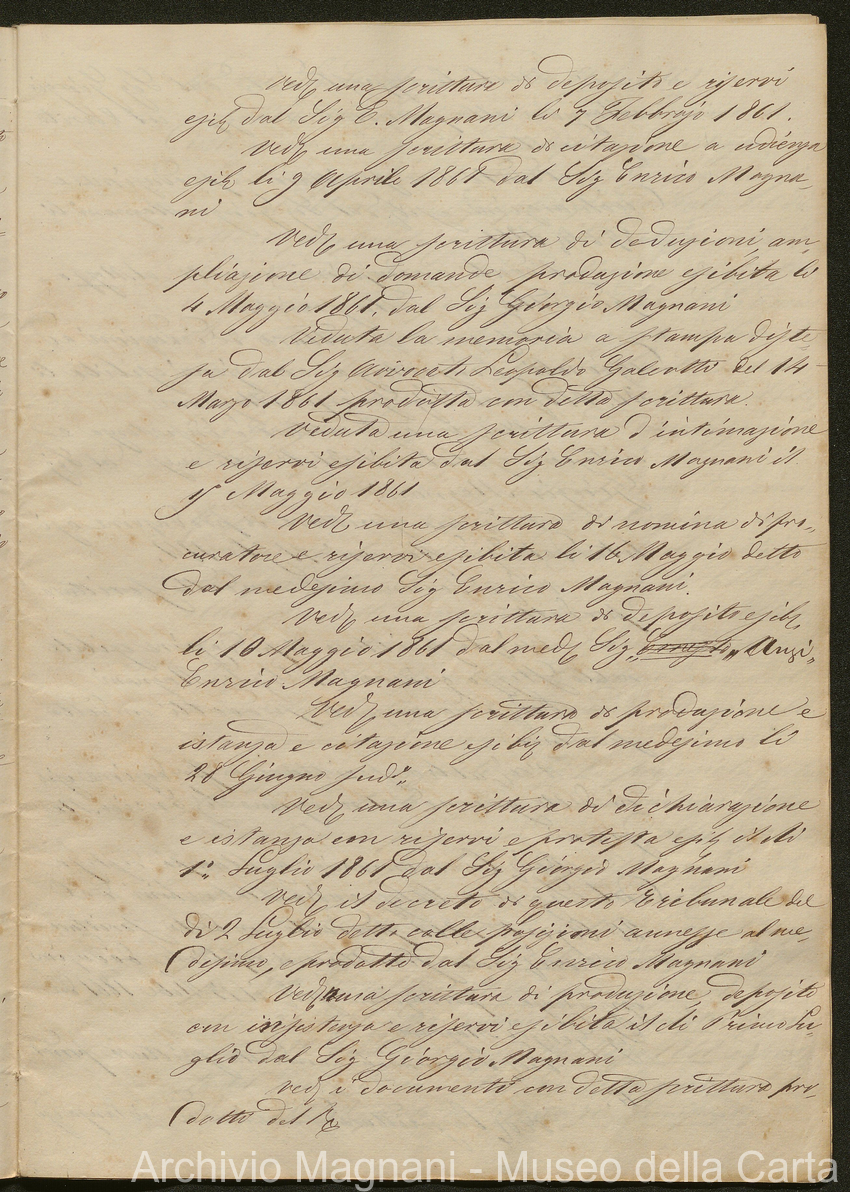 Ved. una scrittura di deposito e riservi
esib. dal Sig E. Magnani li 7 Febbrajo 1861.
Ved. una scrittura di citazione a udienza
esib. li 9 Aprile 1861 dal Sig Enrico Magna-
ni
Ved. una scrittura di deduzioni, am-
pliazione di domande produzione esibita li
4 Maggio 1861, dal Sig Giorgio Magnani
Veduta la memoria a stampa diste-
sa dal Sig Avvocato Leopoldo Galeotti del 14
Marzo 1861 prodotta con detta scrittura
Veduta una scrittura d'intimazione
e riservi esibita dal Sig Enrico Magnani il
Maggio 1861
Ved. una scrittura di nomina di pro-
curatore e riservi esibita li 16 Maggio detto
dal medesimo Sig Enrico Magnani.
Ved. una scrittura di deposito esib.
li 10 Maggio 1861 dal med. Sig "Ernesto" "Anzi"
Enrico Magnani
Ved. una scrittura di produzione e
istanza e citazione esib. dal medesimo li
28 Giugno sud.º
Ved. una scrittura di dichiarazione
e istanza con riservi e protesta esib. il di
1º Luglio 1861 dal Sig Giorgio Magnani
Ved. il decreto di questo Tribunale del
di 2 Luglio detto colle posizioni annesse al me-
desimo, e prodotto dal Sig Enrico Magnani
Ved. una scrittura di produzione deposito
con insistenza e riservi esibita il di Primo Lu-
glio dal Sig Giorgio Magnani
Ved. i documenti con detta scrittura pro-
dotti del
Archivio Magnani - Museo della Carta